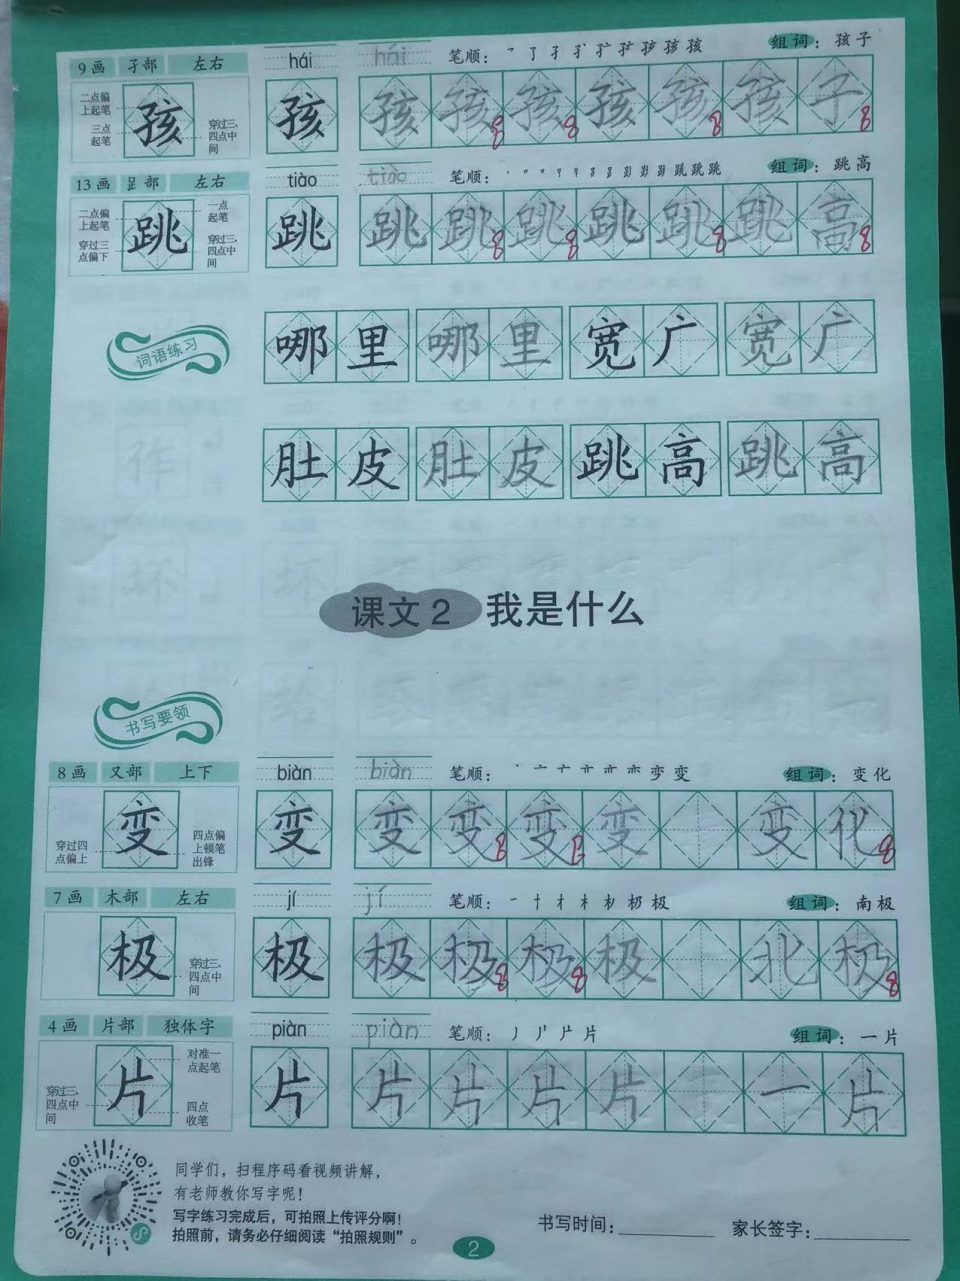 9画 子部 左右 hái hái 笔顺: 组词: 孩子
二点偏上起笔 三点起笔 孩 穿过三、四点中间 孩 孩 孩 孩 孩 孩 孩 子
13画 𧾷部 左右 tiào tiào 笔顺: 组词: 跳高
二点偏上起笔 穿过三点偏下 跳 一点起笔 穿过三、四点中间 跳 跳 跳 跳 跳 跳 跳 高
词语练习 哪里 哪里 宽广 宽广
肚皮 肚皮 跳高 跳高
课文2 我是什么
书写要领
8画 又部 上下 biàn biàn 笔顺: 组词: 变化
穿过四点偏上 变 四点偏上顿笔出锋 变 变 变 变 变 变 化
7画 木部 左右 jí jí 笔顺: 组词: 南极
极 穿过三、四点中间 极 极 极 极 极 北 极
4画 片部 独体字 piàn piàn 笔顺: 组词: 一片
穿过三、四点中间 片 对准一点起笔 四点收笔 片 片 片 片 片 一 片
同学们，扫程序码看视频讲解，
有老师教你写字呢！
写字练习完成后，可拍照上传评分啊！
拍照前，请务必仔细阅读“拍照规则”。
书写时间: 家长签字:
2